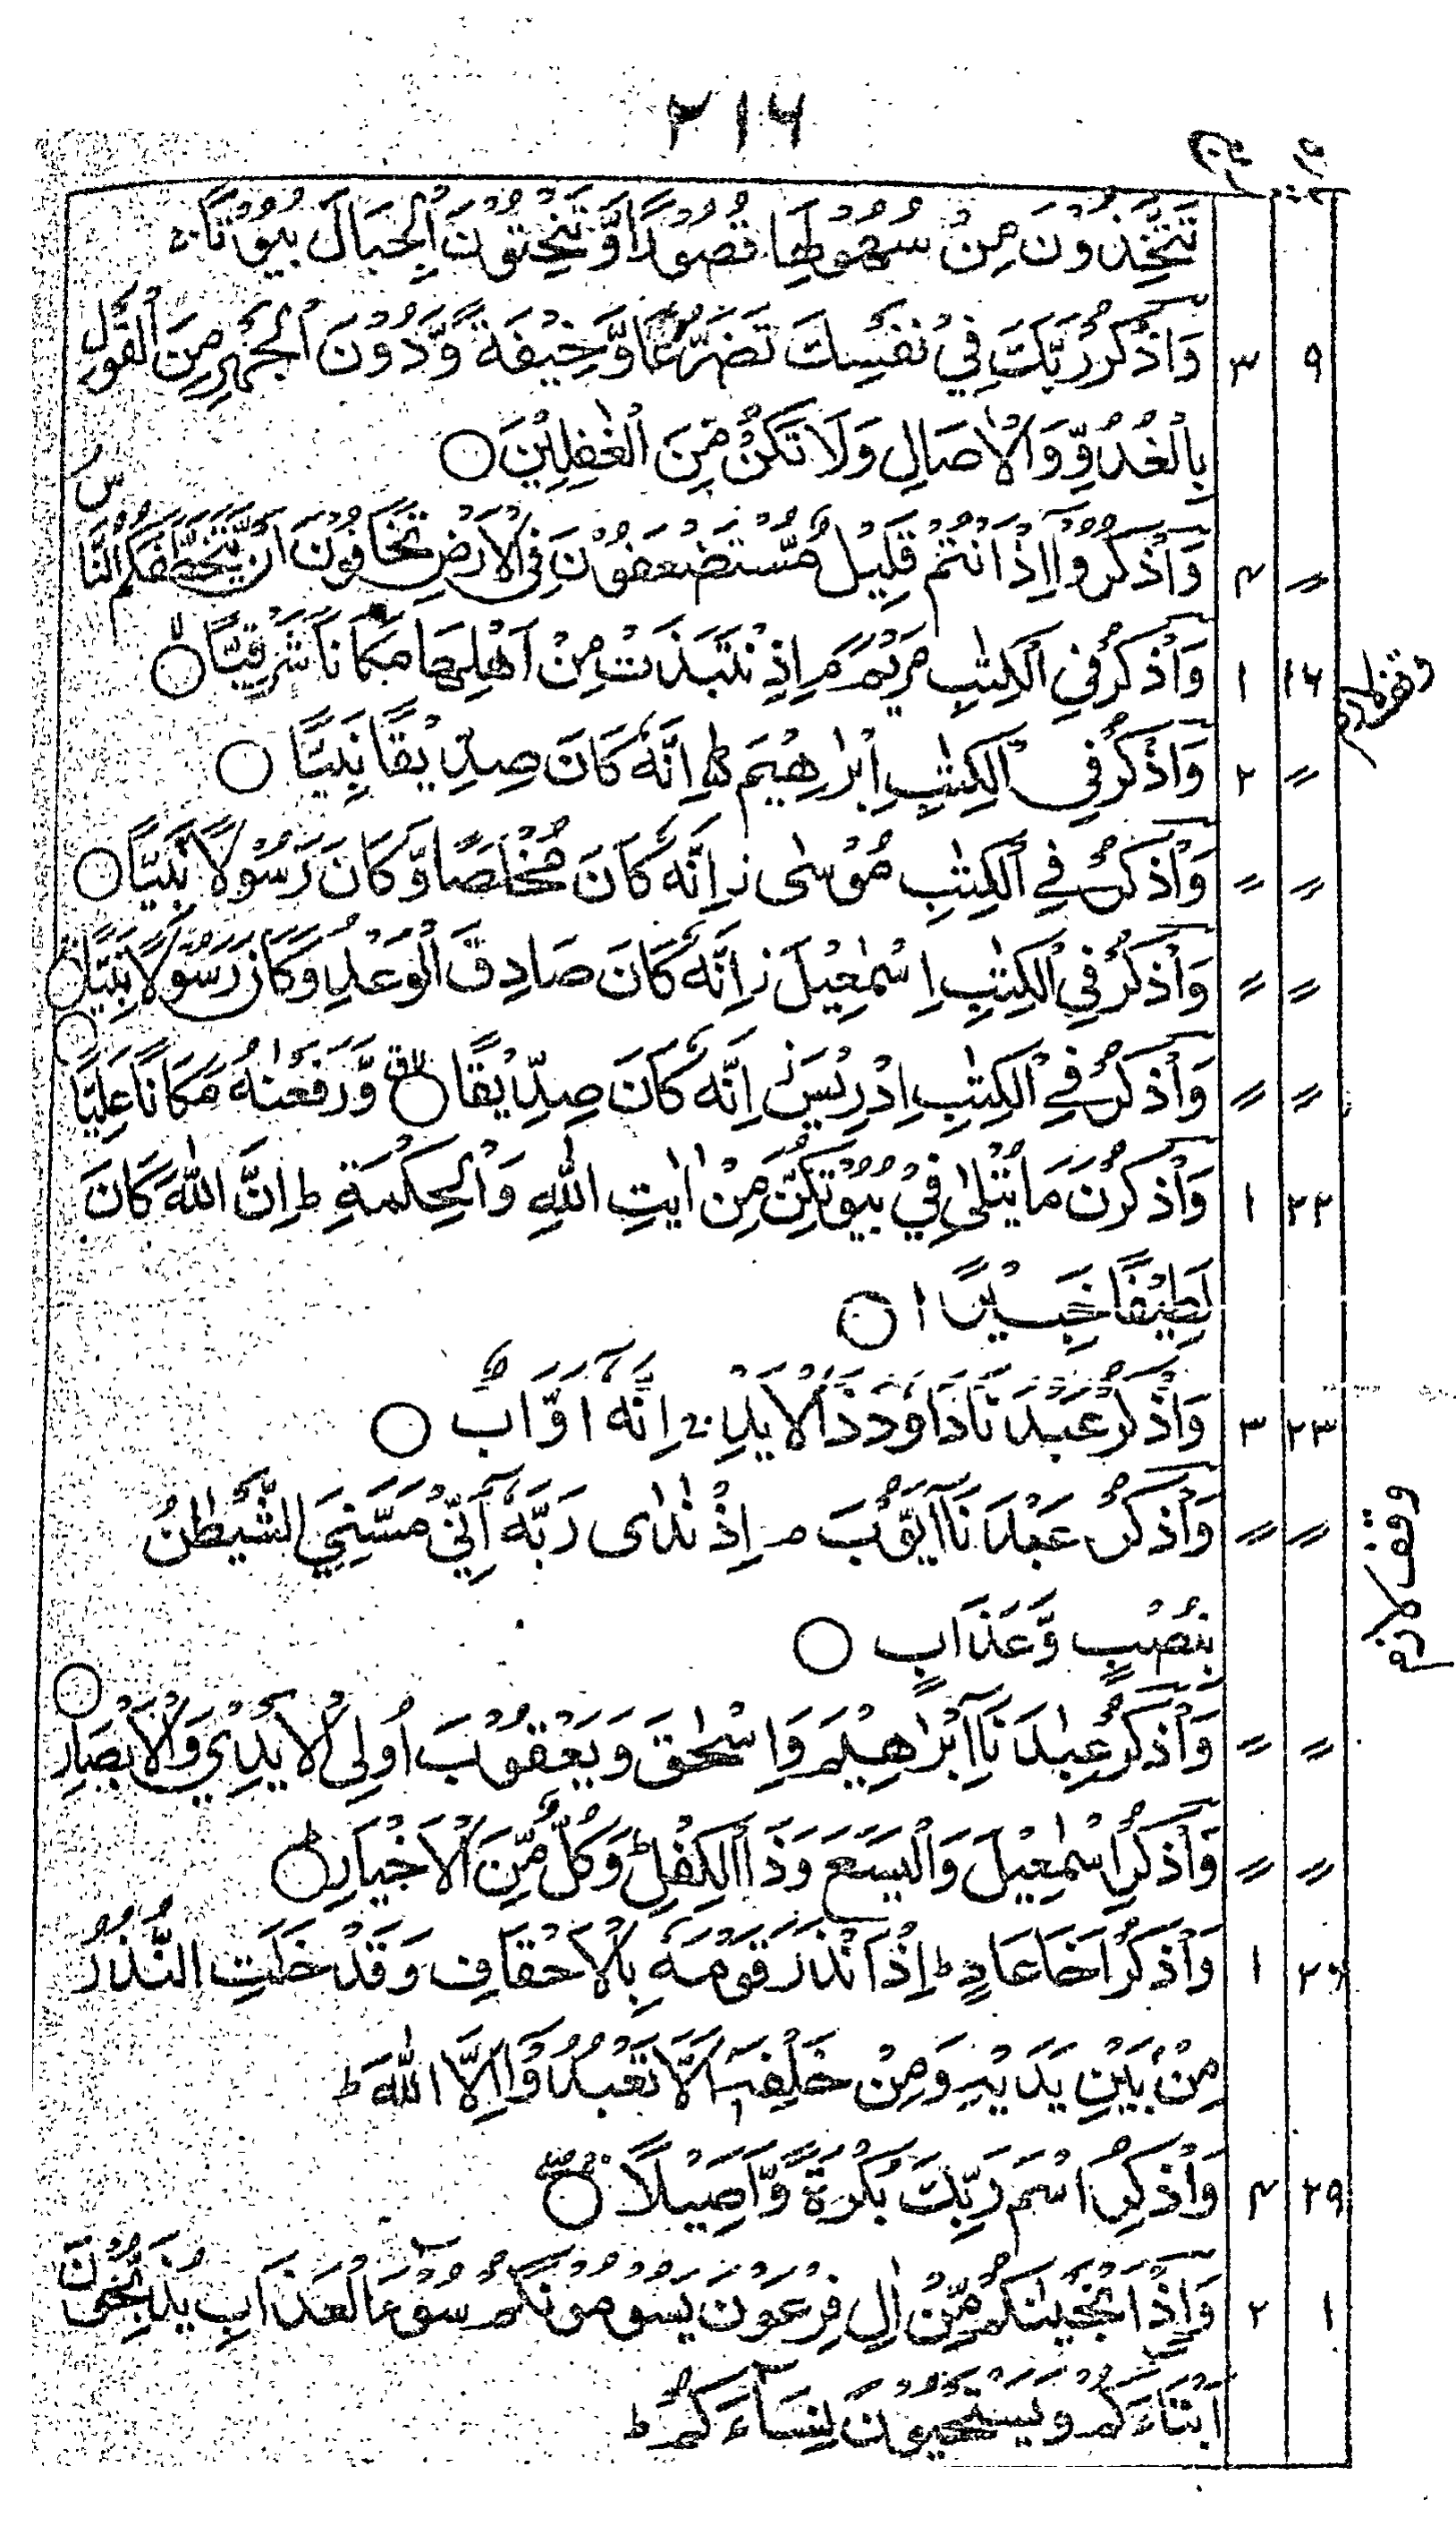 ۲۱۶
تَتَّخِذُوْنَ مِنْ سُهُوْلِهَا قُصُوْرًا وَّتَنْحِتُوْنَ الْجِبَالَ بُيُوْتًا ج
۹ ۳ وَاذْكُرْ رَّبَّكَ فِيْ نَفْسِكَ تَضَرُّعًا وَّخِيْفَةً وَّدُوْنَ الْجَهْرِ مِنَ الْقَوْلِ
بِالْغُدُوِّ وَالْاٰصَالِ وَلَا تَكُنْ مِّنَ الْغٰفِلِيْنَ ○
〃 ۴ وَاذْكُرُوْا اِذْ اَنْتُمْ قَلِيْلٌ مُّسْتَضْعَفُوْنَ فِي الْاَرْضِ تَخَافُوْنَ اَنْ يَّتَخَطَّفَكُمُ النَّاسُ
۱۶ ۱ وَاذْكُرْ فِي الْكِتٰبِ مَرْيَمَ م اِذِ نْتَبَذَتْ مِنْ اَهْلِهَا مَكَانًا شَرْقِيًّا ○ لا
وقف لازم
〃 ۲ وَاذْكُرْ فِي الْكِتٰبِ اِبْرٰهِيْمَ ط اِنَّهٗ كَانَ صِدِّيْقًا نَّبِيًّا ○
〃 〃 وَاذْكُرْ فِي الْكِتٰبِ مُوْسٰى ز اِنَّهٗ كَانَ مُخْلَصًا وَّكَانَ رَسُوْلًا نَّبِيًّا ○
〃 〃 وَاذْكُرْ فِي الْكِتٰبِ اِسْمٰعِيْلَ ز اِنَّهٗ كَانَ صَادِقَ الْوَعْدِ وَكَانَ رَسُوْلًا نَّبِيًّا ○
〃 〃 وَاذْكُرْ فِي الْكِتٰبِ اِدْرِيْسَ ز اِنَّهٗ كَانَ صِدِّيْقًا ○ وَّرَفَعْنٰهُ مَكَانًا عَلِيًّا ○
۲۲ ۱ وَاذْكُرْنَ مَا يُتْلٰى فِيْ بُيُوْتِكُنَّ مِنْ اٰيٰتِ اللّٰهِ وَالْحِكْمَةِ ط اِنَّ اللّٰهَ كَانَ
لَطِيْفًا خَبِيْرًا ○
۲۳ ۳ وَاذْكُرْ عَبْدَنَا دَاوٗدَ ذَا الْاَيْدِ ج اِنَّهٗ اَوَّابٌ ○
〃 〃 وَاذْكُرْ عَبْدَنَا اَيُّوْبَ م اِذْ نَادٰى رَبَّهٗ اَنِّيْ مَسَّنِيَ الشَّيْطٰنُ
وقف لازم
بِنُصْبٍ وَّعَذَابٍ ○
〃 〃 وَاذْكُرْ عِبٰدَنَا اِبْرٰهِيْمَ وَاِسْحٰقَ وَيَعْقُوْبَ اُولِي الْاَيْدِيْ وَالْاَبْصَارِ ○
〃 〃 وَاذْكُرْ اِسْمٰعِيْلَ وَالْيَسَعَ وَذَا الْكِفْلِ ط وَكُلٌّ مِّنَ الْاَخْيَارِ ○ ط
۲۶ ۱ وَاذْكُرْ اَخَا عَادٍ ط اِذْ اَنْذَرَ قَوْمَهٗ بِالْاَحْقَافِ وَقَدْ خَلَتِ النُّذُرُ
مِنْۢ بَيْنِ يَدَيْهِ وَمِنْ خَلْفِهٖٓ اَلَّا تَعْبُدُوْا اِلَّا اللّٰهَ ط
۲۹ ۴ وَاذْكُرِ اسْمَ رَبِّكَ بُكْرَةً وَّاَصِيْلًا ○
۱ ۲ وَاِذْ اَنْجَيْنٰكُمْ مِّنْ اٰلِ فِرْعَوْنَ يَسُوْمُوْنَكُمْ سُوْٓءَ الْعَذَابِ يُذَبِّحُوْنَ
اَبْنَآءَكُمْ وَيَسْتَحْيُوْنَ نِسَآءَكُمْ ط